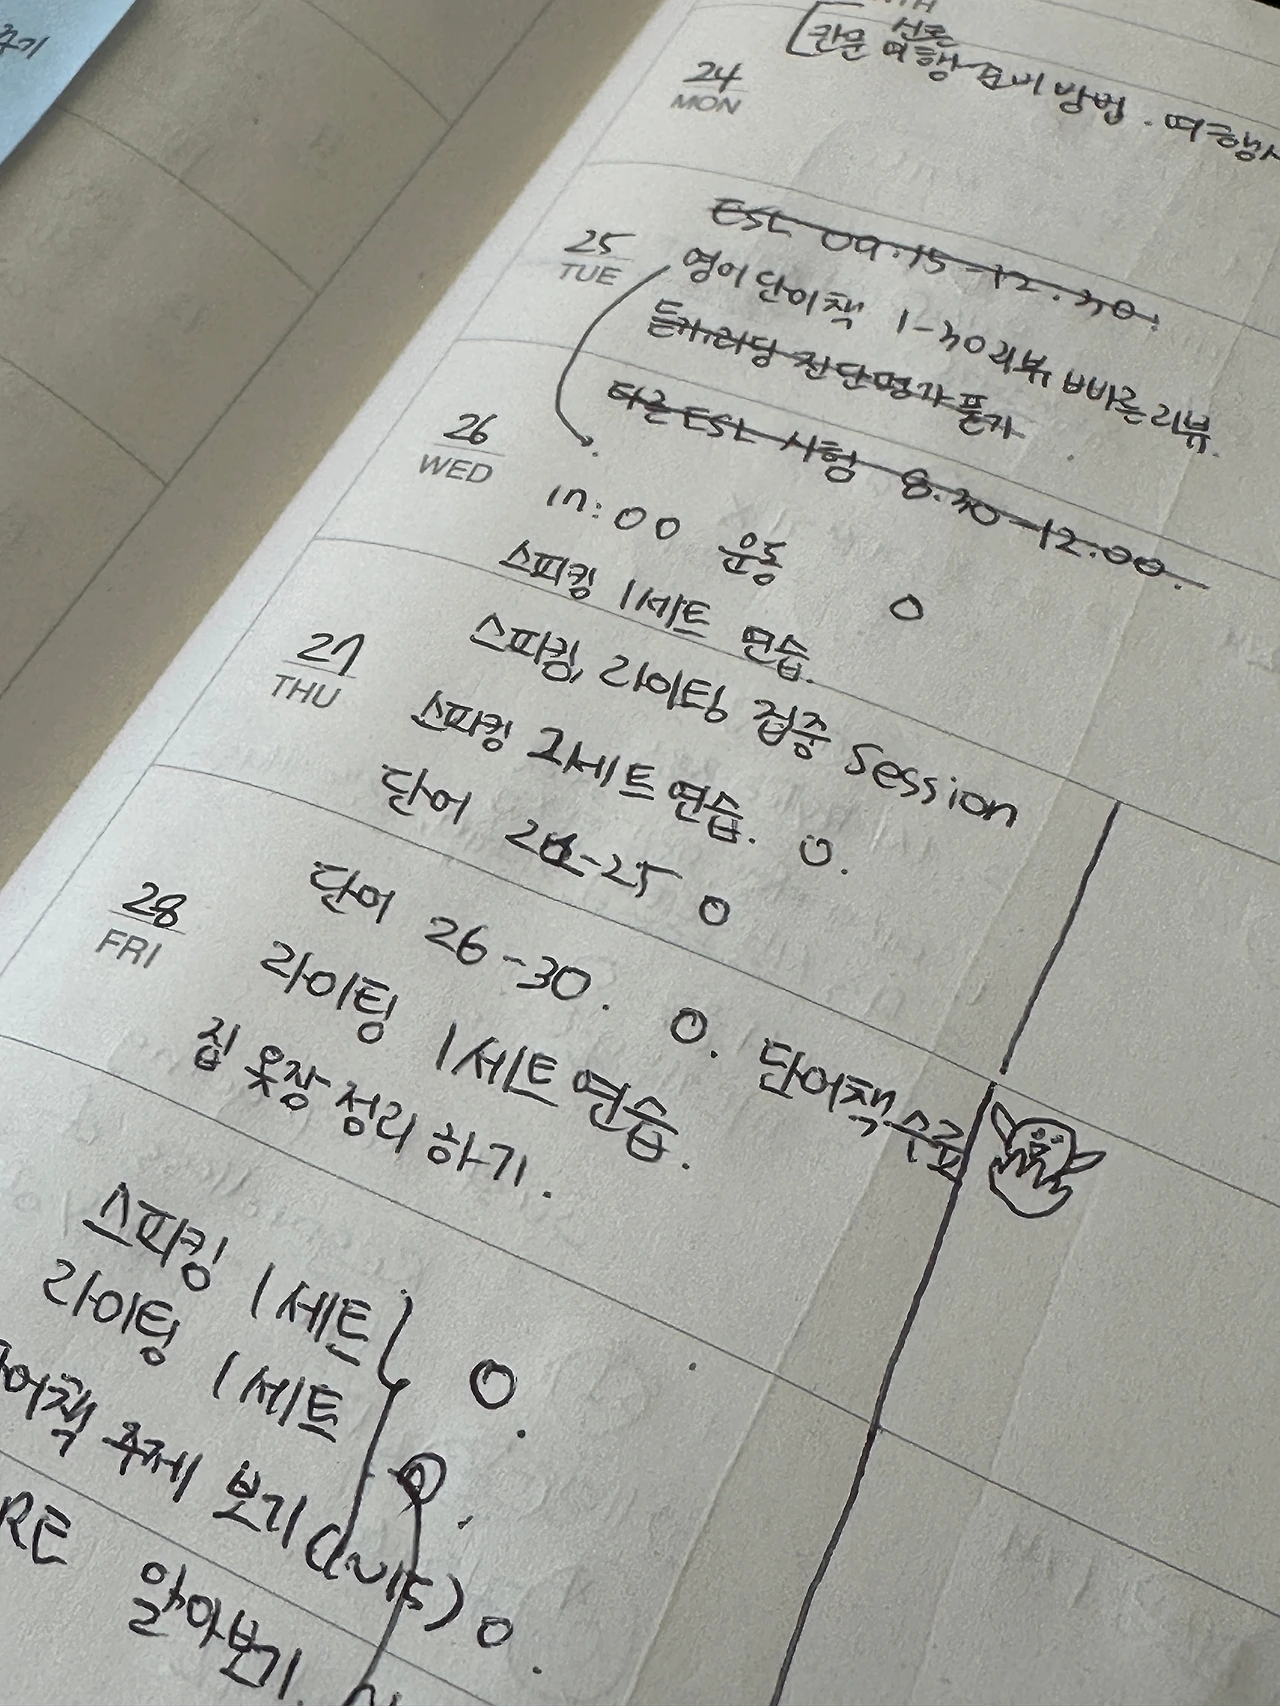 주기
신혼
칸쿤 여행 준비 방법. 여행사
24
MON
ESL 09:15-12:30.
25
TUE
영어단어책 1-30 리뷰 빠른 리뷰.
진단평가 풀기
26
WED
ESL 시험 8:30-12:00.
운동 O
스피킹 1세트 연습.
27
THU
스피킹, 라이팅 집중 Session
스피킹 2세트 연습. O.
단어 -25 O
28
FRI
단어 26-30. O. 단어책 수료
라이팅 1세트 연습.
집 옷장 정리하기.
스피킹 1세트 O.
라이팅 1세트
어책 주제 보기 (1~15) O.
RE 알아보기.